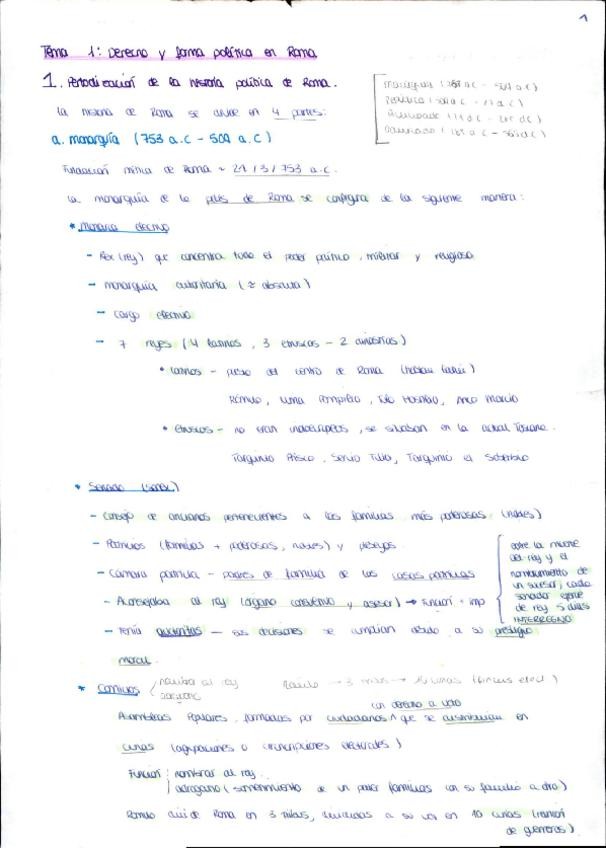 1
Tema 1: Derecho y forma política en Roma
1. Periodización de la historia política de Roma.
La historia de Roma se divide en 4 partes:
a. monarquía (753 a.C - 509 a.C)
Fundación mítica de Roma ~ 21/3/753 a.c.
La monarquía de la polis de Roma se configura de la siguiente manera:
- Rex (rey) que concentra todo el poder político, militar y religioso
- monarquía autoritaria (≈ absoluta)
- cargo electivo
- 7 reyes (4 latinos, 3 etruscos - 2 dinastías)
• latinos - del centro de Roma
Rómulo, Numa Pompilio, Tulio Hostilio, Anco Marcio
• etruscos - no eran indoeuropeos, se situaban en la actual Toscana.
Tarquinio Prisco, Servio Tulio, Tarquinio el Soberbio
* Senado (senex)
- Consejo de ancianos pertenecientes a las familias más poderosas (nobles)
- Patricios (familias + poderosas, nobles) y plebeyos.
- Cámara patricia - padres de familia de las casas patricias
- Aconsejaba al rey (órgano consultivo y asesor) → Función + imp
- Tenía auctoritas - sus decisiones se cumplían debido a su prestigio
moral.
entre la muerte
del rey y el
nombramiento de
un sucesor, cada
senador ejerce
de rey 5 días
INTERREGNO
* Comicios
nombra al rey
3 tribus → curias
con derecho a voto
Asambleas Populares, formadas por ciudadanos ^ que se distribuían en
curias (agrupaciones o circunscripciones electorales)
Función: nombrar al rey.
adrogatio (sometimiento de un pater familias con su familia a otro)
Romulo divide Roma en 3 tribus, divididas a su vez en 10 curias (reunión
de guerreros)